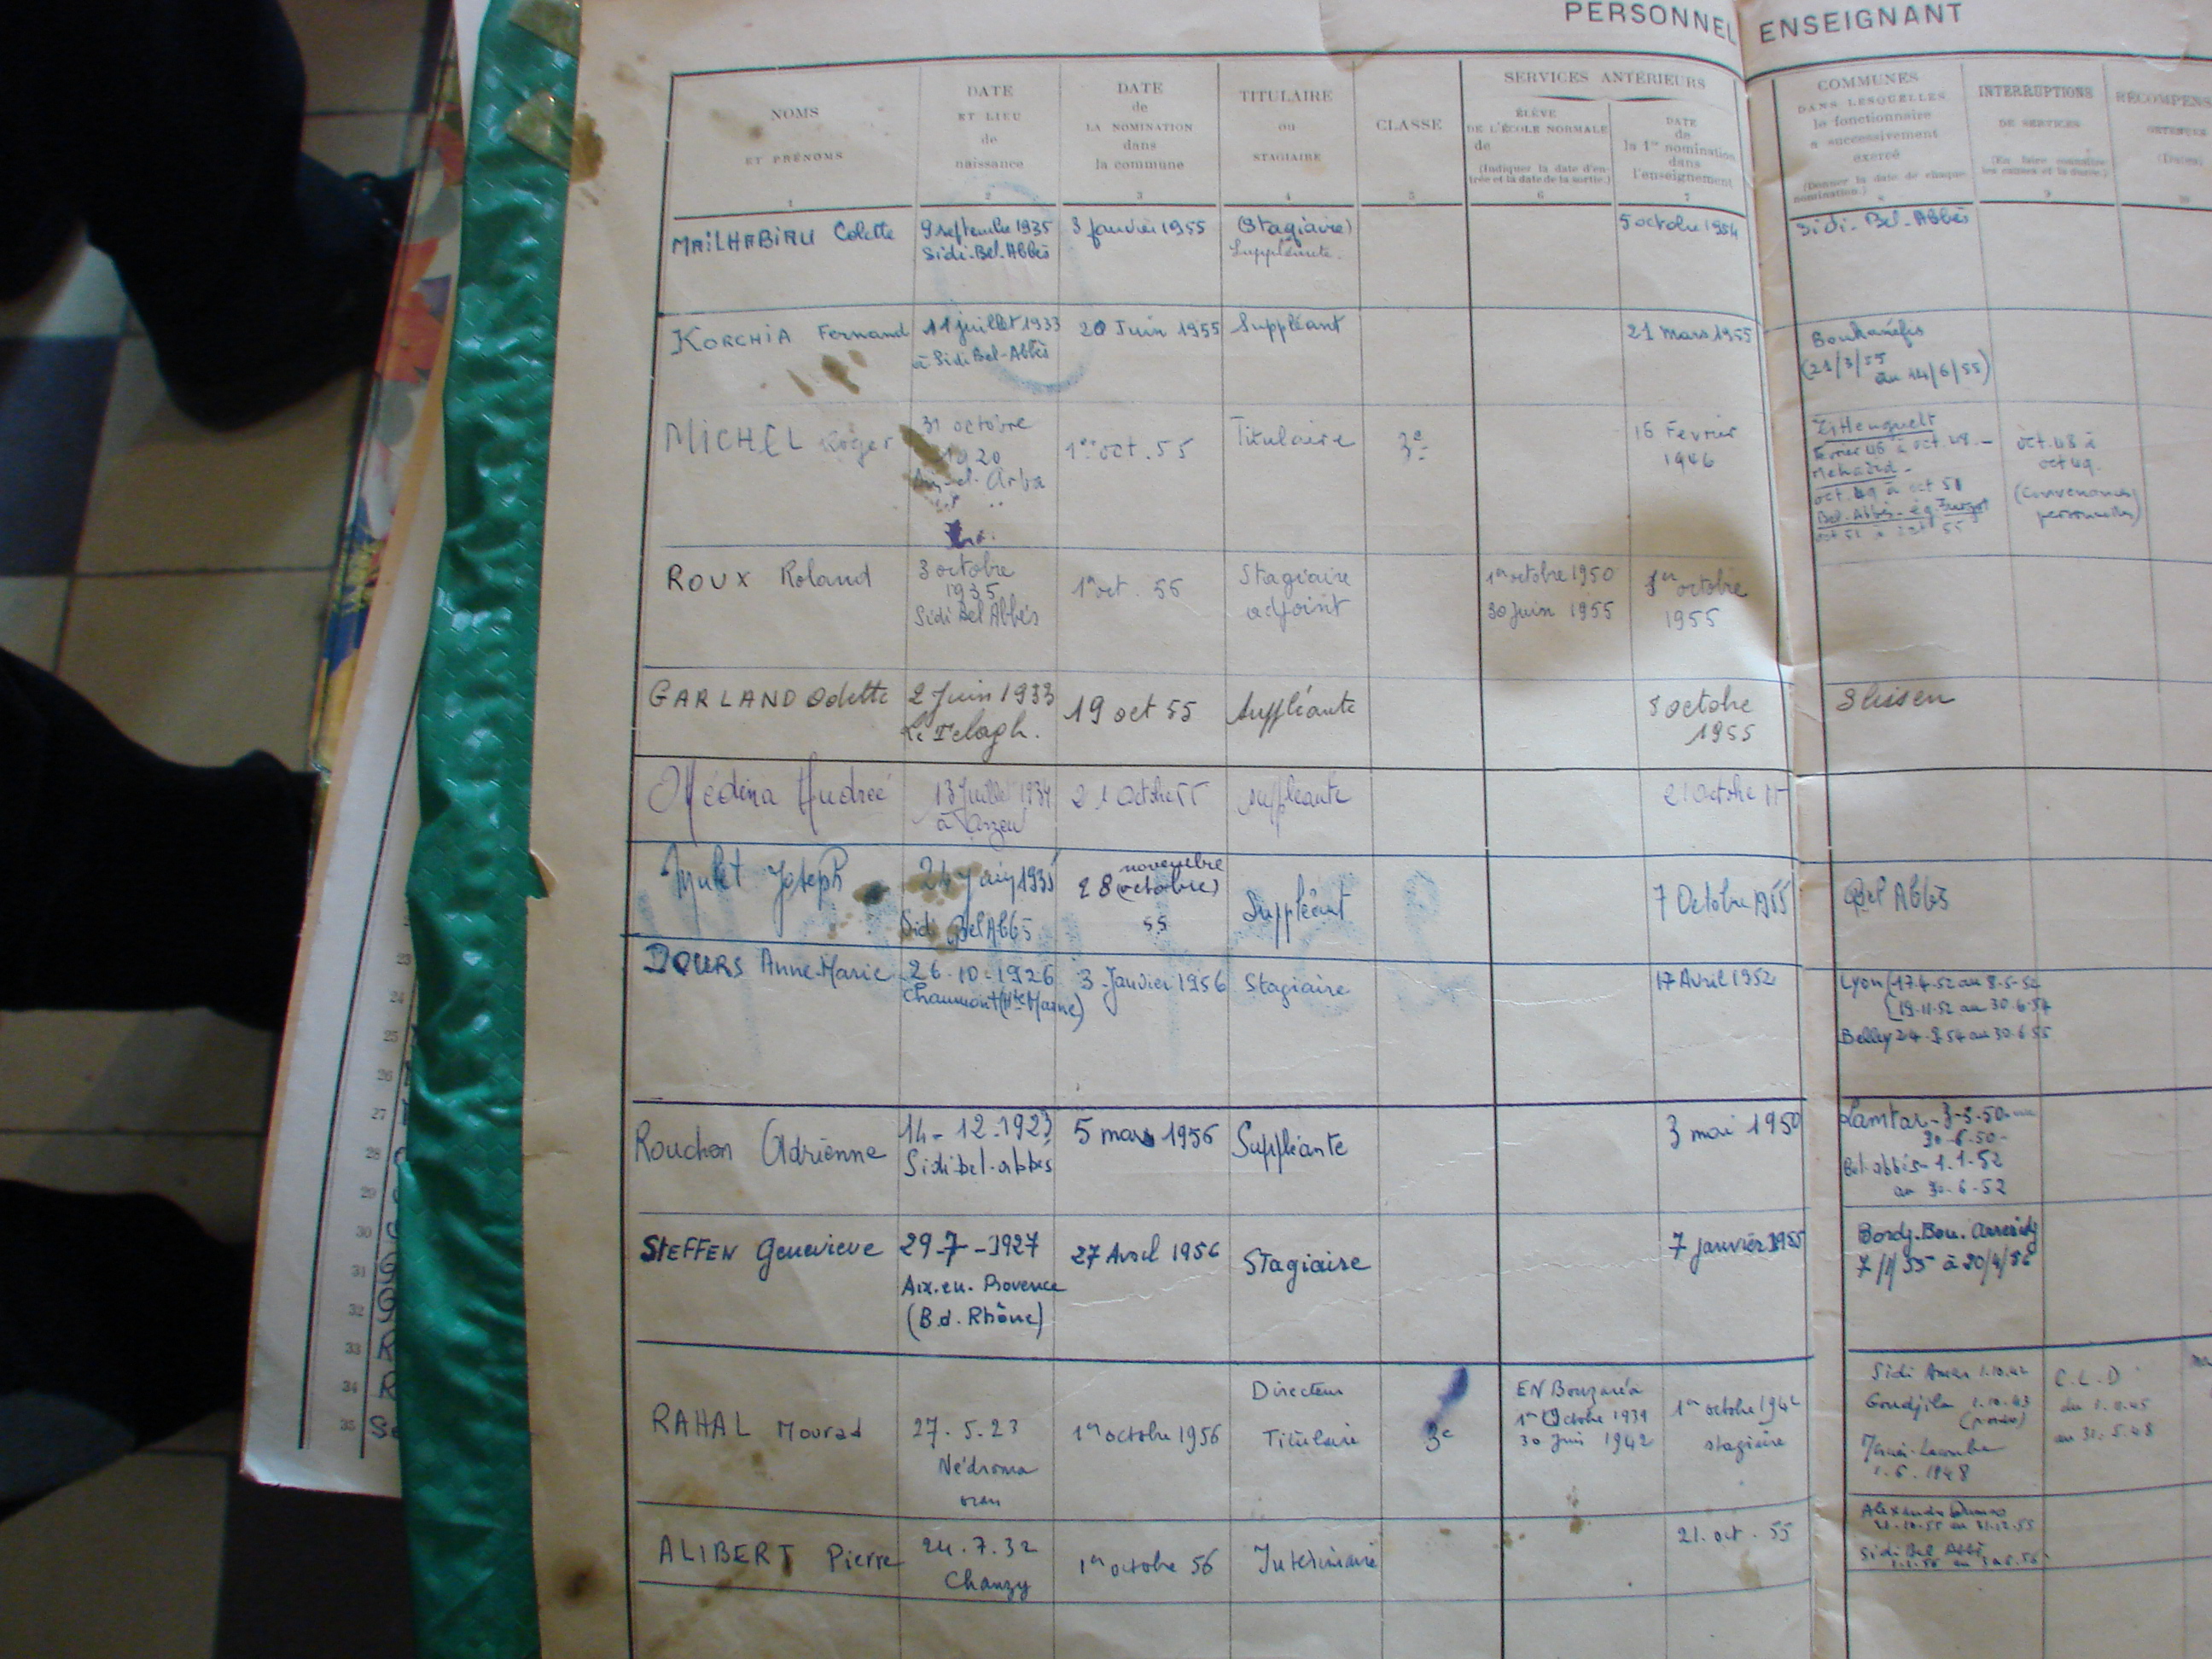 PERSONNEL ENSEIGNANT
NOMS
ET PRÉNOMS
1
DATE
ET LIEU
de
naissance
2
DATE
de
LA NOMINATION
dans
la commune
3
TITULAIRE
ou
STAGIAIRE
4
CLASSE
5
SERVICES ANTÉRIEURS
ÉLÈVE
DE L'ÉCOLE NORMALE
de
(Indiquer la date d'en-
trée et la date de la sortie.)
6
DATE
de
la 1re nomination
dans
l'enseignement
7
COMMUNES
DANS LESQUELLES
le fonctionnaire
a successivement
exercé
(Donner la date de chaque
nomination.)
8
INTERRUPTIONS
DE SERVICES
(En faire connaître
les causes et la durée.)
9
RÉCOMPENS
OBTENUES
(Dates)
10
MAILHABIAU Colette
9 septembre 1935
Sidi-Bel-Abbès
3 janvier 1955
(Stagiaire)
Suppléante.
5 octobre 1954
Sidi-Bel-Abbès
KORCHIA Fernand
11 juillet 1933
à Sidi Bel-Abbès
20 Juin 1955
Suppléant
21 mars 1955
Boukanéfis
(21/3/55
au 14/6/55)
MICHEL Roger
31 octobre
1920
Aïn-el-Arba
1er oct. 55
Titulaire
3e
16 Février
1946
Février 46 à oct. 48.-
oct. 49 à oct 51
oct. 48 à
oct 49.
(convenances
personnelles)
ROUX Roland
3 octobre
1935
Sidi Bel Abbès
1er oct. 55
Stagiaire
adjoint
1er octobre 1950
30 juin 1955
1er octobre
1955
GARLAND Odette
2 Juin 1933
Le Telagh.
19 oct 55
Suppléante
8 octobre
1955
Slissen
Médina Andrée
13 Juillet 1934
à Arzew
21 Octobre 55
Suppléante
21 Octobre 55
Mulet Joseph
24 Juin 1935
Sidi Bel Abbès
novembre
28 (octobre)
55
Suppléant
7 Octobre 1955
Bel Abbès
DOURS Anne-Marie
26-10-1926
Chaumont (Hte Marne)
3 Janvier 1956
Stagiaire
17 Avril 1952
Lyon (17.4.52 au 8.5.52
(19.11.52 au 30.6.54
Belley 24.9.54 au 30.6.55
Rouchon Adrienne
14-12-1923
Sidi-bel-abbès
5 mars 1956
Suppléante
3 mai 1950
Lamtar-3-5-50-au
30-6-50-
Bel-abbès-1.1-52
au 30-6-52
STEFFEN Geneviève
29-7-1927
Aix-en-Provence
(B.d.Rhône)
27 Avril 1956
Stagiaire
7 janvier 1955
Bordj-Bou-Arreridj
7/1/55 à 20/4/56
RAHAL Mourad
27.5.23
Nédroma
oran
1er octobre 1956
Directeur
Titulaire
3e
EN Bouzaréa
1er Octobre 1939
30 Juin 1942
1er octobre 1942
stagiaire
Sidi Amar 1.10.42
Goudjila 1.10.43
1.6.1948
C.L.D
au 31.5.48
ALIBERT Pierre
24.7.32
Chanzy
1er octobre 56
Intérimaire
21.oct.55
Alexandre Dumas
21.10.55 au 31.12.55
Sidi Bel Abbès
23
24
25
26
27
28
29
30
31
32
33
34
35